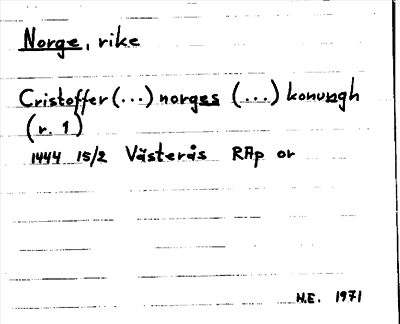 Norge, rike
Cristoffer (...) norges (...) konungh
(r. 1)
1444 15/2 Västerås RAp or
H.E. 1971